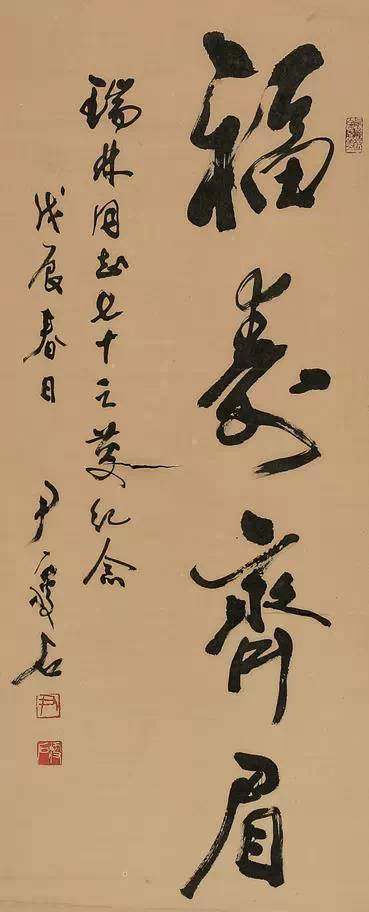 福寿齊眉
瑞林同志七十之慶纪念
戊辰春日 尹瘦石
尹